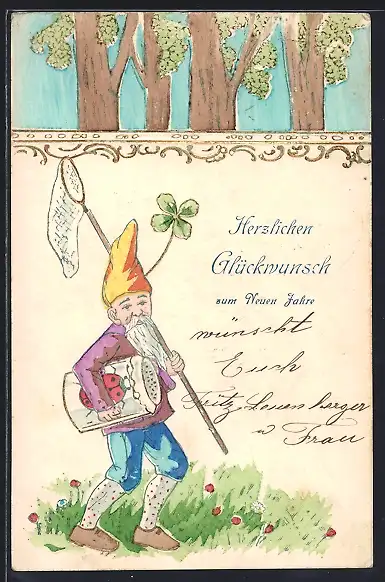 Herzlichen
Glückwunsch
zum Neuen Jahre
wünscht
Euch
Fritz Leuenberger
u Frau